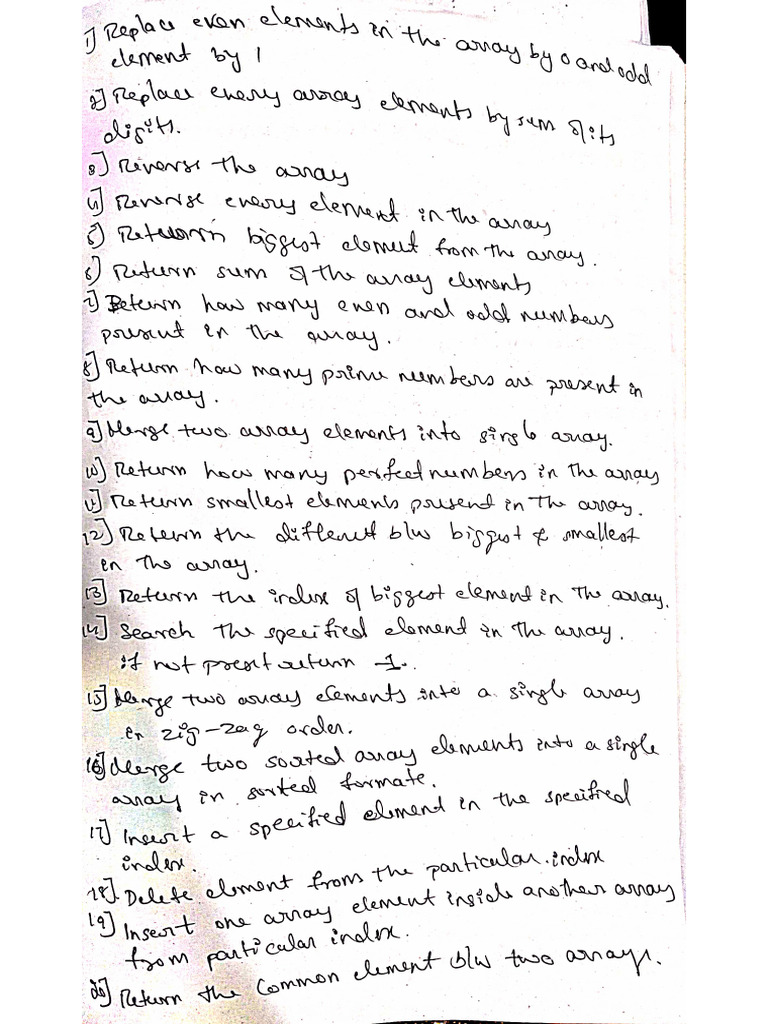 1] Replace even elements in the array by 0 and odd
element by 1
2] Replace every array elements by sum of its
digits.
3] Reverse the array
4] Reverse every element in the array
5] Return biggest element from the array.
6] Return sum of the array elements
7] Return how many even and odd numbers
present in the array.
8] Return how many prime numbers are present in
the array.
9] Merge two array elements into single array.
10] Return how many perfect numbers in the array
11] Return smallest elements present in the array.
12] Return the different b/w biggest & smallest
in the array.
13] Return the index of biggest element in the array.
14] Search the specified element in the array.
if not present return -1.
15] Merge two array elements into a single array
in zig-zag order.
16] Merge two sorted array elements into a single
array in sorted formate.
17] Insert a specified element in the specified
index.
18]. Delete element from the particular index
19] Insert one array element inside another array
from particular index.
20] Return the common element b/w two arrays.